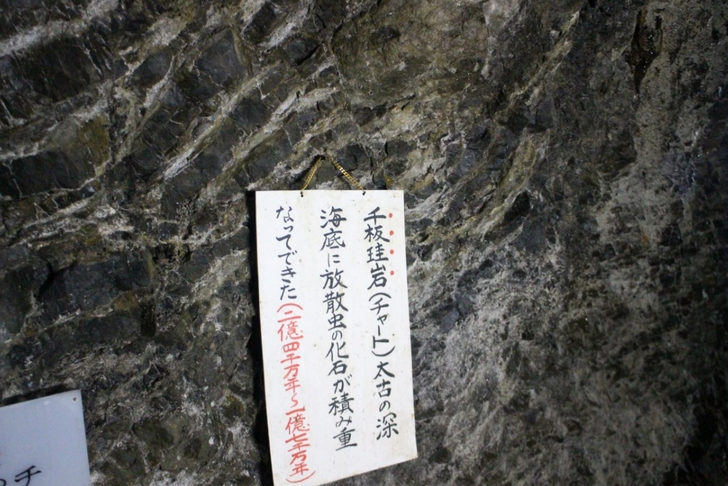 千板珪岩(チャート)太古の深
海底に放散虫の化石が積み重
なってできた(二億四千万年〜一億七千万年)
チ